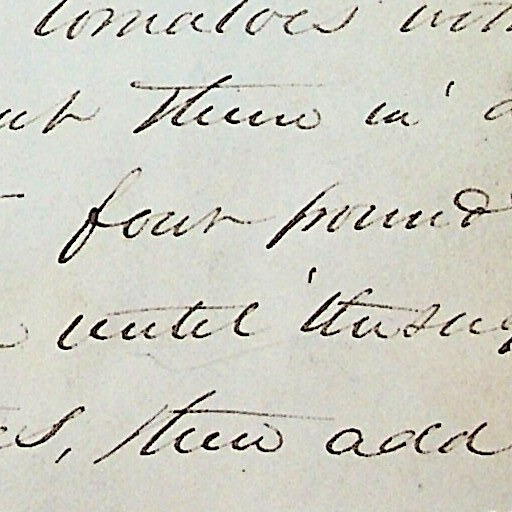 tomatoes with
put them in a
four pound
until the sug
es, then add